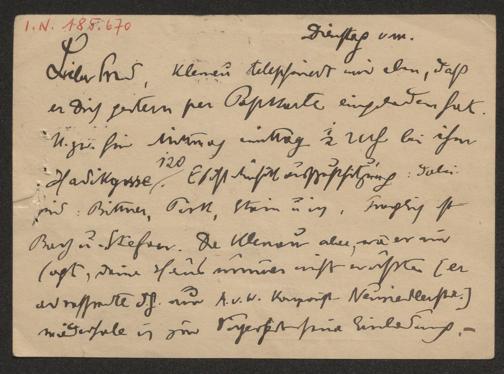 I.N. 185.670
Dienstag vm.
Lieber Freund, Klenau telephoniert mir eben, daß
er Dich gestern per Postkarte eingeladen hat.
U.zw. für Mittwoch mittag ½ 2 Uhr bei ihm
Hadikgasse 120
: dabei
sind: Bittner, Stein u. ich. Fraglich ist
Bach u. Stefan. Da Klenau aber, wie er mir
sagt, Deine Hausnummer nicht wußte [er
adressierte Dg. nur A.v.W. Komponist Neuwiedlerstr.]
wiederhole ich zur Vorsicht seine Einladung.–